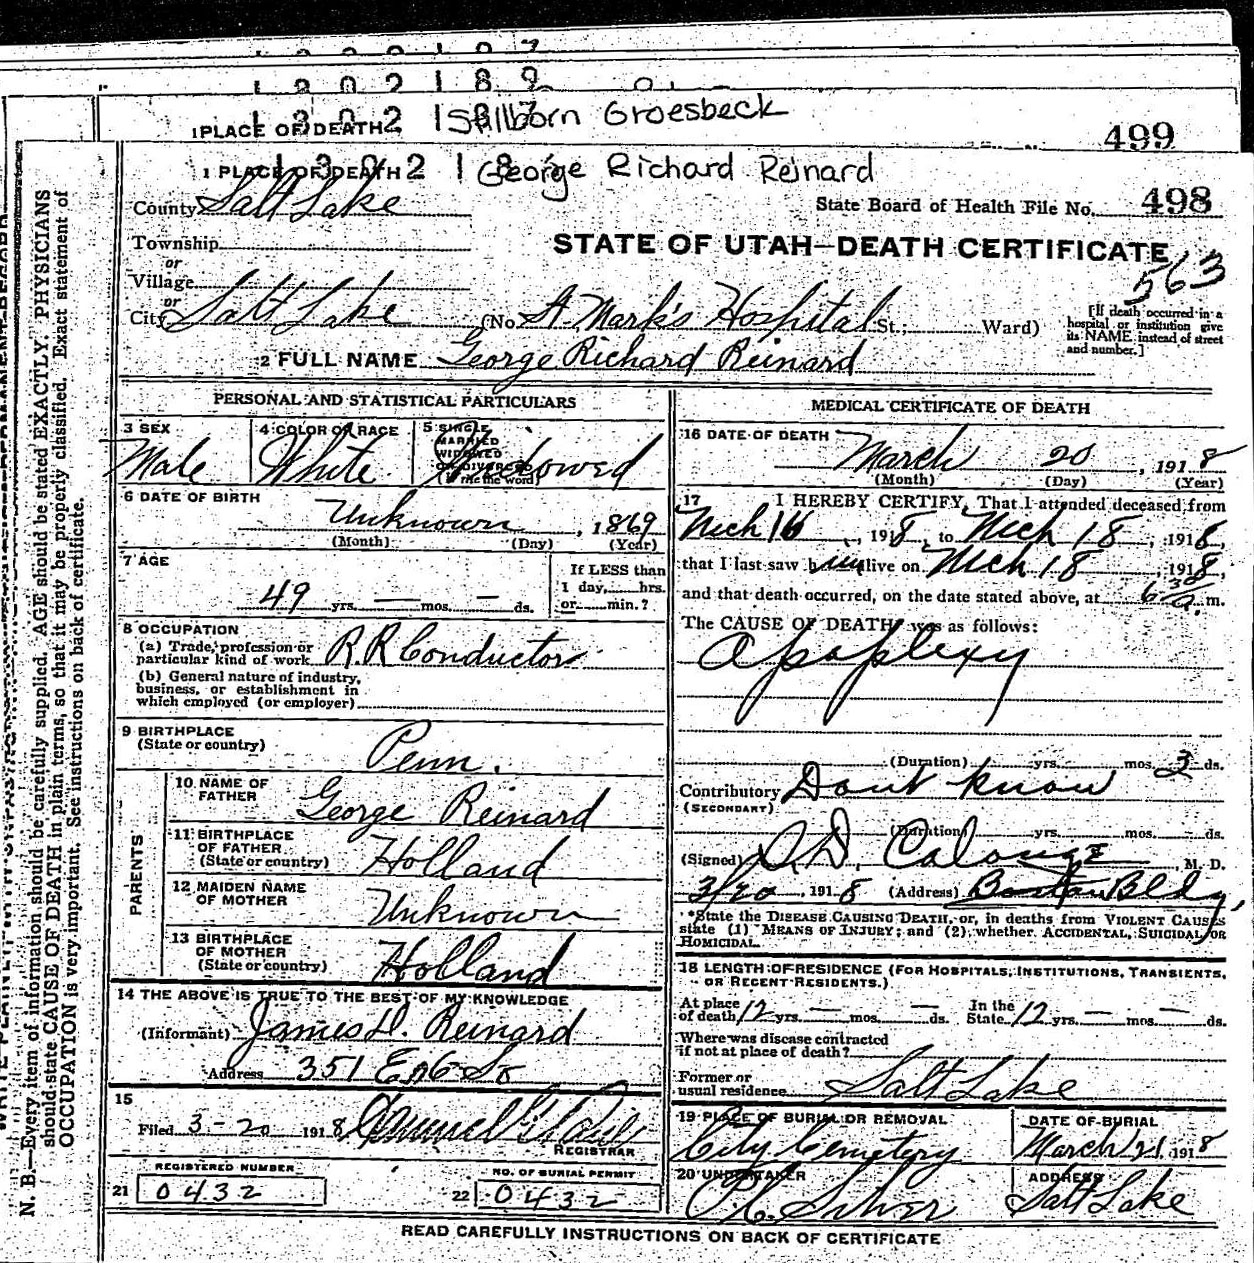 1 3 0 2 1 8 9
1 PLACE OF DEATH Stillborn Groesbeck
499
1 PLACE OF DEATH George Richard Reinard
County Salt Lake
State Board of Health File No. 498
Township
STATE OF UTAH—DEATH CERTIFICATE
563
or
Village
or
City Salt Lake (No. St. Mark's Hospital St.; Ward)
[If death occurred in a hospital or institution give its NAME instead of street and number.]
2 FULL NAME George Richard Reinard
PERSONAL AND STATISTICAL PARTICULARS
3 SEX Male
4 COLOR OR RACE White
5 SINGLE MARRIED WIDOWED OR DIVORCED (Write the word) Widowed
6 DATE OF BIRTH
Unknown, 1869
(Month) (Day) (Year)
7 AGE
49 yrs. — mos. — ds.
If LESS than 1 day, hrs. or min.?
8 OCCUPATION
(a) Trade, profession or particular kind of work R.R Conductor
(b) General nature of industry, business, or establishment in which employed (or employer)
9 BIRTHPLACE
(State or country) Penn.
PARENTS
10 NAME OF FATHER George Reinard
11 BIRTHPLACE OF FATHER (State or country) Holland
12 MAIDEN NAME OF MOTHER Unknown
13 BIRTHPLACE OF MOTHER (State or country) Holland
14 THE ABOVE IS TRUE TO THE BEST OF MY KNOWLEDGE
(Informant) James D. Reinard
Address 351 E 6 So
15
Filed 3-20 1918
REGISTRAR
REGISTERED NUMBER
21 0432
NO. OF BURIAL PERMIT
22 0432
MEDICAL CERTIFICATE OF DEATH
16 DATE OF DEATH
March 20, 1918
(Month) (Day) (Year)
17 I HEREBY CERTIFY, That I attended deceased from
Mch 16, 1918, to Mch 18, 1918,
that I last saw him alive on Mch 18, 1918,
and that death occurred, on the date stated above, at 6 30 a. m.
The CAUSE OF DEATH was as follows:
Apoplexy
(Duration) yrs. mos. 3 ds.
Contributory Dont know
(SECONDARY)
(Duration) yrs. mos. ds.
(Signed) M. D.
3/20 1918 (Address) Boston Bldg,
*State the DISEASE CAUSING DEATH, or, in deaths from VIOLENT CAUSES state (1) MEANS OF INJURY; and (2) whether ACCIDENTAL, SUICIDAL, OR HOMICIDAL.
18 LENGTH OF RESIDENCE (FOR HOSPITALS, INSTITUTIONS, TRANSIENTS, OR RECENT RESIDENTS.)
At place of death 12 yrs. — mos. — ds. In the State 12 yrs. — mos. — ds.
Where was disease contracted if not at place of death?
Former or usual residence Salt Lake
19 PLACE OF BURIAL OR REMOVAL City Cemetery
DATE OF BURIAL March 21, 1918
20 UNDERTAKER Silver
ADDRESS Salt Lake
READ CAREFULLY INSTRUCTIONS ON BACK OF CERTIFICATE
N. B.—Every item of information should be carefully supplied. AGE should be stated EXACTLY. PHYSICIANS
should state CAUSE OF DEATH in plain terms, so that it may be properly classified. Exact statement of
OCCUPATION is very important. See instructions on back of certificate.